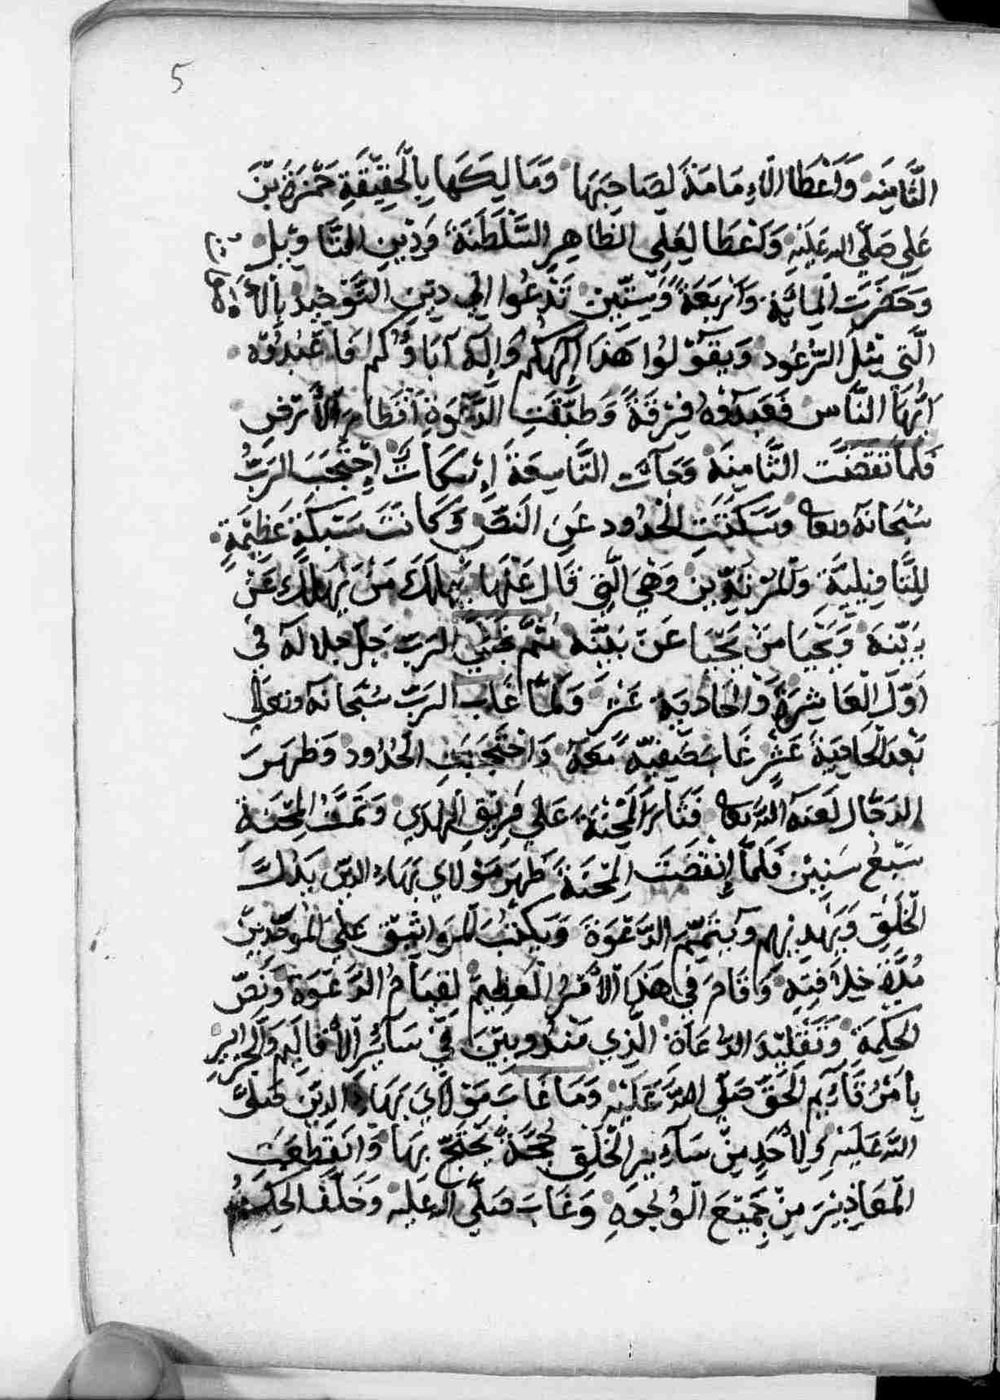 5
الثَّامِنَه وَاَعْطَا الاِءمَامَةَ لِصَاحِبَهَا وَمَالِكَهَا بِالْحَقِيْقَةِ حَمْزَةَ بْنَ
عَلِي صَلَّى الله عَلَيْهِ وَاَعْطَا لِعَلِي الظَاهِرِ السَّلْطَنَة
وَحَضَرَت الْمِائَة وَاَرْبَعَةً وَسِتِّيْن تَدْعُوا اِلي دِيْنِ التَّوْحِيْد
الَّتِي مِثْلَ الرُّعُود وَيَقُوْلُوا هَذَا اِلَهَكُم وَاِلَه آبَاوُّكُم فَاعْبُدُوْه
اَيُّهَا النَّاس فَعَبَدُوْهُ فِرْقَةً وَطَبَّقَتِ الدَّعْوَة اَقْطَارِ الأَرْض
فَلَمَا نَقَضَت الثَّامِنَة وَجَآت التَّاسِعَةَ اِحْتَجَبَ الرَبُّ
سُبْحَانَه وتعا وَسَكَتَتِ الْحُدُود عَنِ النَصّ وَكَانَتْ سَبْكَة عَظِيْمَةٍ
لِلْمُنَافِقِيْن وَلِلْمُرْتَدِّيْن وَهِيَ الَّتِي قَال عَنْهَا يَهْلَكَ مَنْ يَهْلَك عَنْ
بَيِّنَة وَيَحْيَا مَنْ يَحْيَا عَنْ بَيِّنَه ثُمَّ تَجَلي الرَبّ جَلّ جلالهَ فِي
اَوَّلِ الْعَاشِرَةِ وَالْحَادِيَة عَشَرَ وَلَمَّا غَاب الرَبّ سُبْحَانَه وتعَالَى
بَعْدَ الْحَادِيَة عَشَر غَابَ صَفِيّهُ مَعَهُ وَاحْتَجَبَت الْحُدُود وَظَهَرَ
الدَجَّال لَعَنَه الله تعا فَثَارَ الْمِحْنَة عَلي فَرِيْقِ الْهُدَي وَتَمَّت الْمِحْنَةِ
سَبْعُ سَنِيْن فَلَمَّا اِنْقَضَت الْمِحْنَةُ ظَهَرَ مَوْلاي بَهَاء الدِيْن
الْخَلْقِ وَيَهْدِيْهِم وَيُتَمِّم الدَّعْوَة وَيَكْتُبُ الْمَوَاثِيْق عَلَى الْمُوَحِّدِيْنَ
مُدَّة خِلاَفَتِه وَاَقَامَ فِي هَذَا الأَمْرُ الْعَظِيْم لِقِيَامُ الدَّعْوَة وَنَصّ
الحِكْمَة وَتَقْلِيْد الدُعَاة الَّذِي مَنْدُوبِيْنَ فِي سَآئِرِ الأَقَالِيْم وَالْجَزَايِرِ
بِاَمْرُ قَآئِم الْحَقّ صَلَّى اللهُ عَلَيْه وَمَا غَابَ مَوْلاَي بَهَاء الدِيْن صَلَّى
الله عَلَيْهِ وَلاَحَدٍ مِنْ سَآئِر الْخَلْقِ حُجَّةً يَحْتَجُّ بِهَا وَانْقَطَعَت
الْمَعَاذِيْرَ مِنْ جَمِيْعَ الْوُجُوهِ وَغَابَ صَلَّى الله عَلَيْه وَخَلَّفَ الْحِكْمَةُ